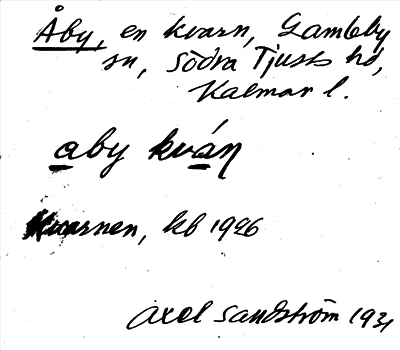 Åby, en kvarn, Gamleby
sn, Södra Tjusts hd,
Kalmar l.
aby kván
Kvarnen, kb 1926
Axel Sandström 1931